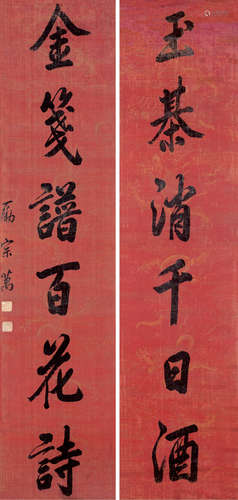 玉棊消千日酒
金箋譜百花詩
勵宗萬